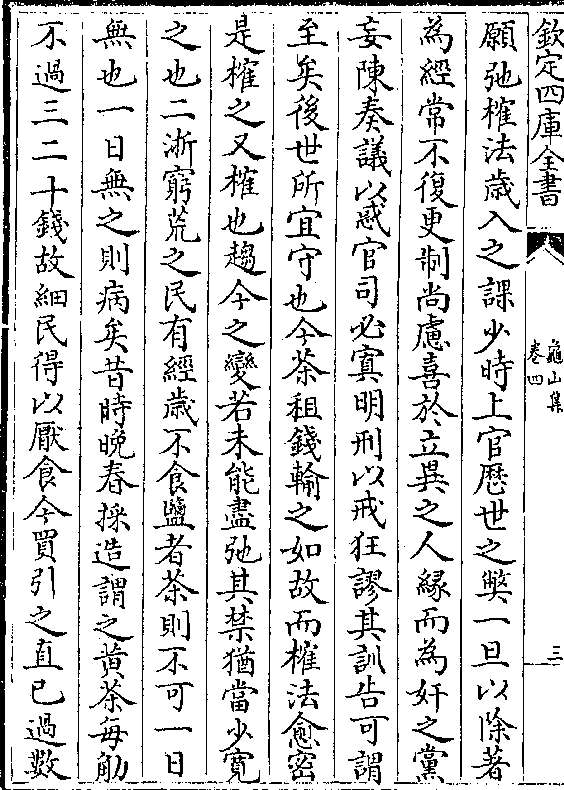 欽定四庫全書
龜山集
卷四
三
願弛榷法歲入之課少時上官歴世之獘一旦以除著
為經常不復更制尚慮喜於立異之人緣而為奸之黨
妄陳奏議以惑官司必寘明刑以戒狂謬其訓告可謂
至矣後世所宜守也今茶租錢輸之如故而榷法愈密
是榷之又榷也趨今之變若未能盡弛其禁猶當少寛
之也二浙窮荒之民有經歳不食鹽者茶則不可一日
無也一日無之則病矣昔時晚春採造謂之黄茶每觔
不過三二十錢故細民得以厭食今買引之直已過數